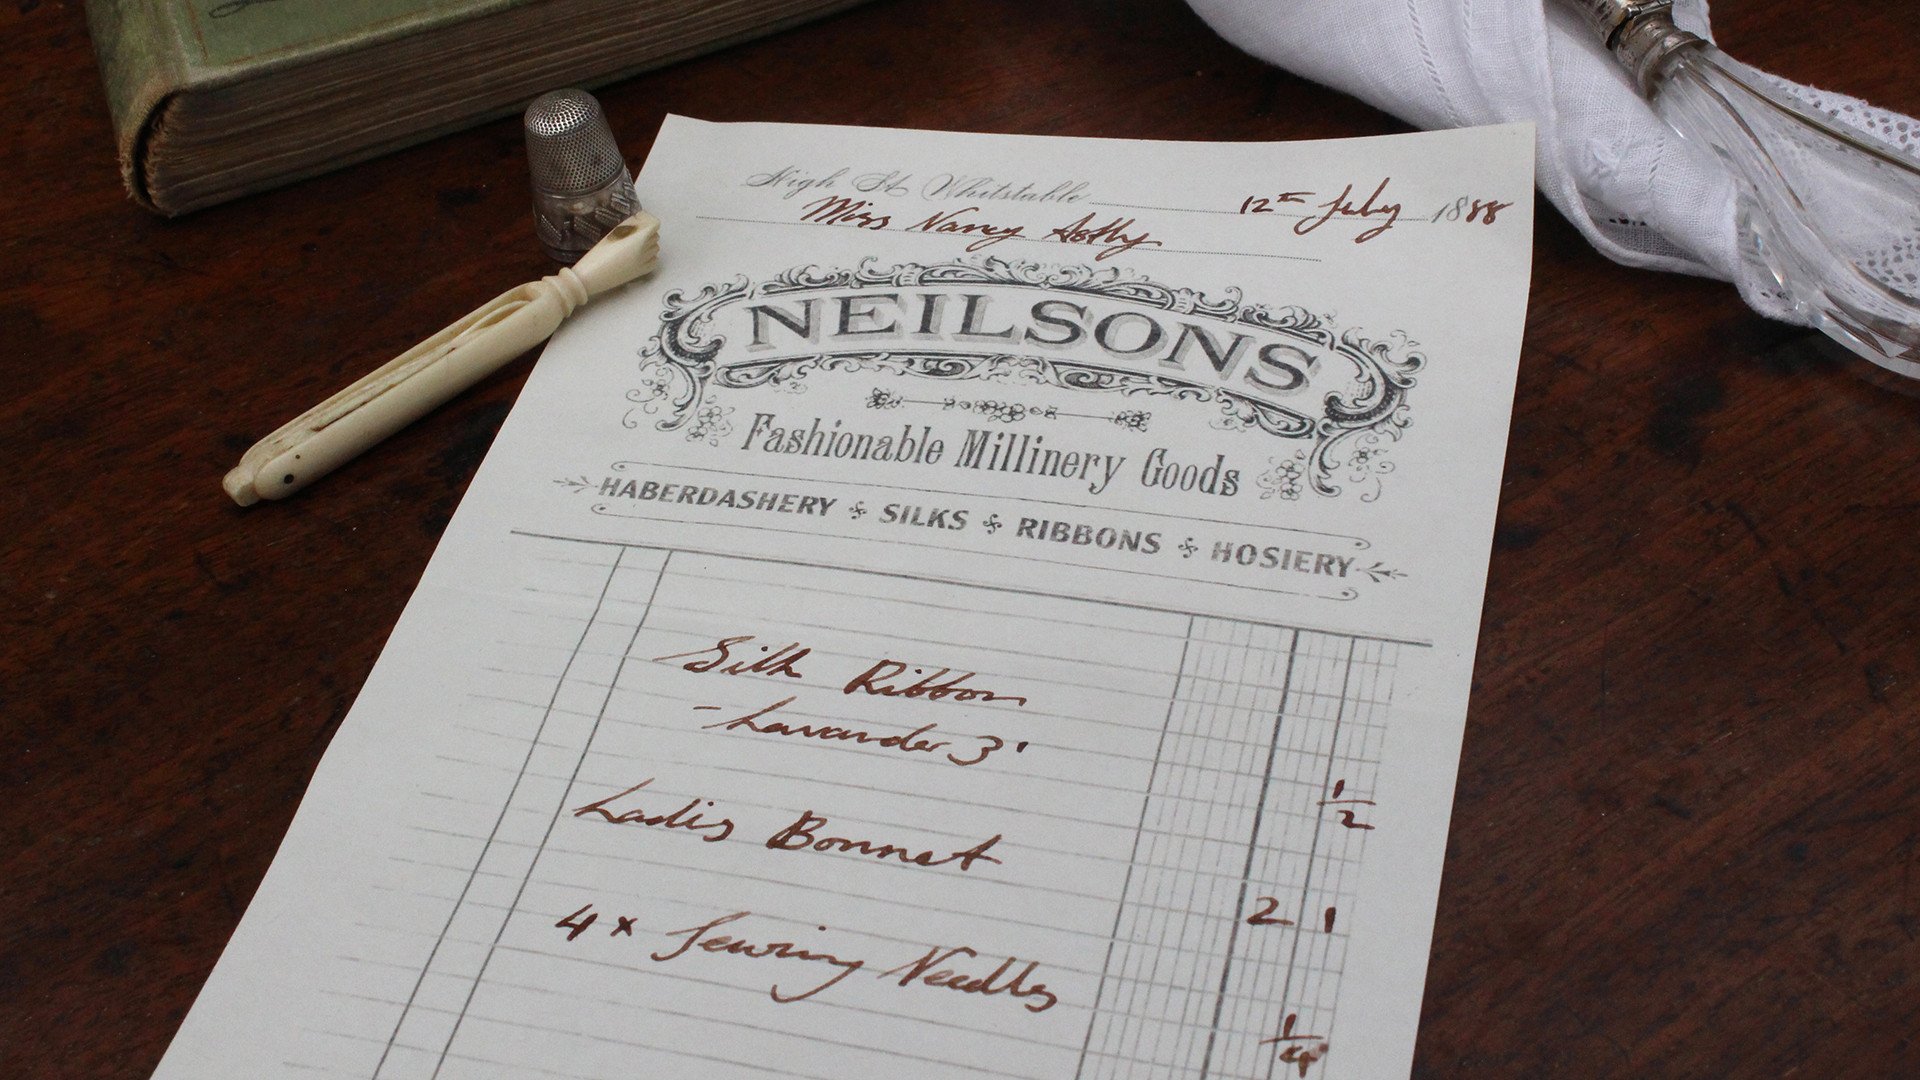 High St. Whitstable 12th July 1888
Miss Nancy
NEILSONS
Fashionable Millinery Goods
HABERDASHERY SILKS RIBBONS HOSIERY
Silk Ribbon
- Lavander 3'
1/2
Ladis Bonnet
2 1
4 x Sewing Needles
1/4